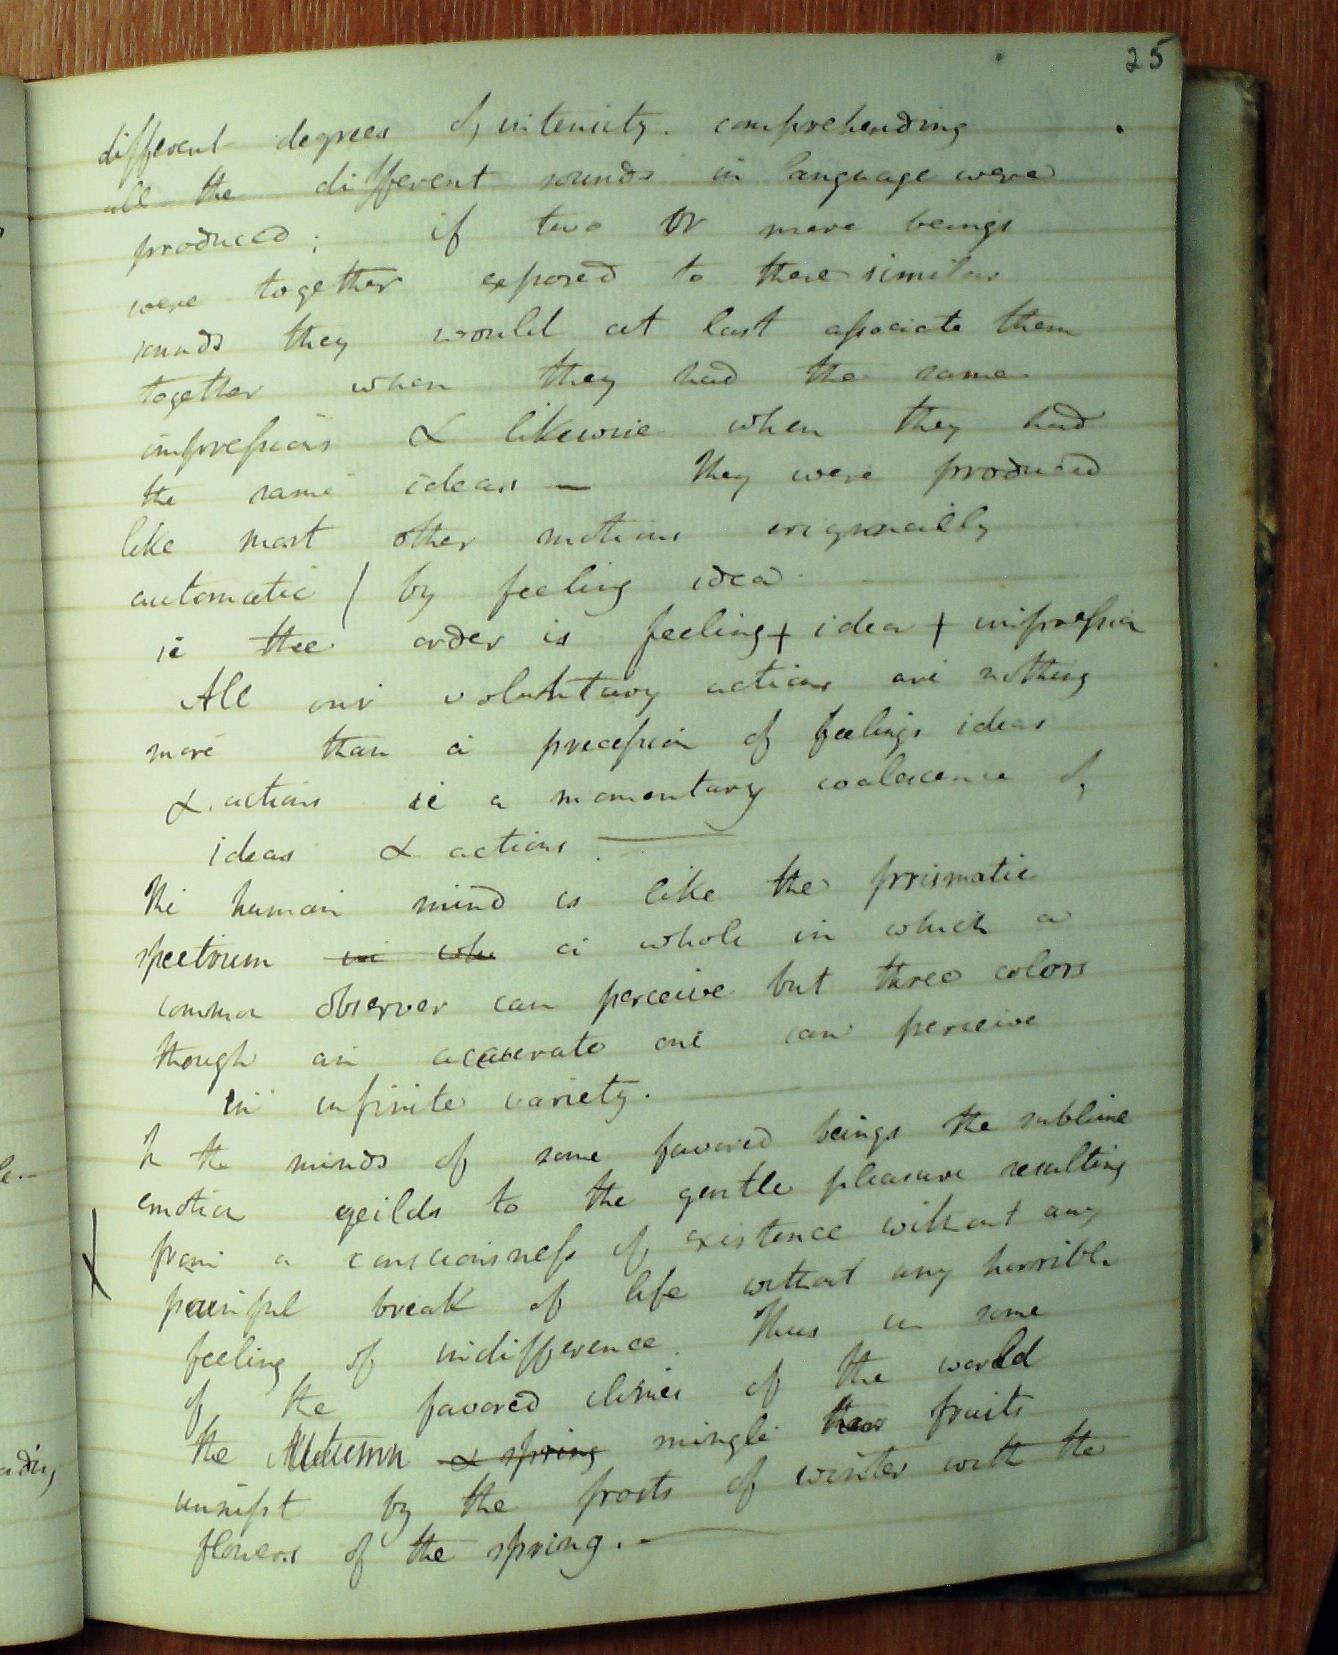 25
different degrees of intensity. comprehending
all the different sounds in language were
produced; if two or more beings
were together exposed to these similar
sounds they would at last associate them
together when they had the same
impressions & likewise when they had
the same ideas — They were produced
like most other motions originally
automatic / by feeling idea
ie the order is feeling + idea + impression
All our voluntary actions are nothing
more than a precession of feelings ideas
& actions ie a momentary coalescence of
ideas & actions. —
The human mind is like the prismatic
spectrum in whi a whole in which a
common observer can perceive but three colors
though an accurate one can perceive
in infinite variety.
In the minds of some favored beings the sublime
emotion yeilds to the gentle pleasure resulting
from a consciousness of existence without any
painful break of life without any horrible
feeling of indifference. Thus in some
of the favored climes of the world
the Autumn & spring mingle their fruits
unnipt by the frosts of winter with the
flowers of the spring. —
le.—